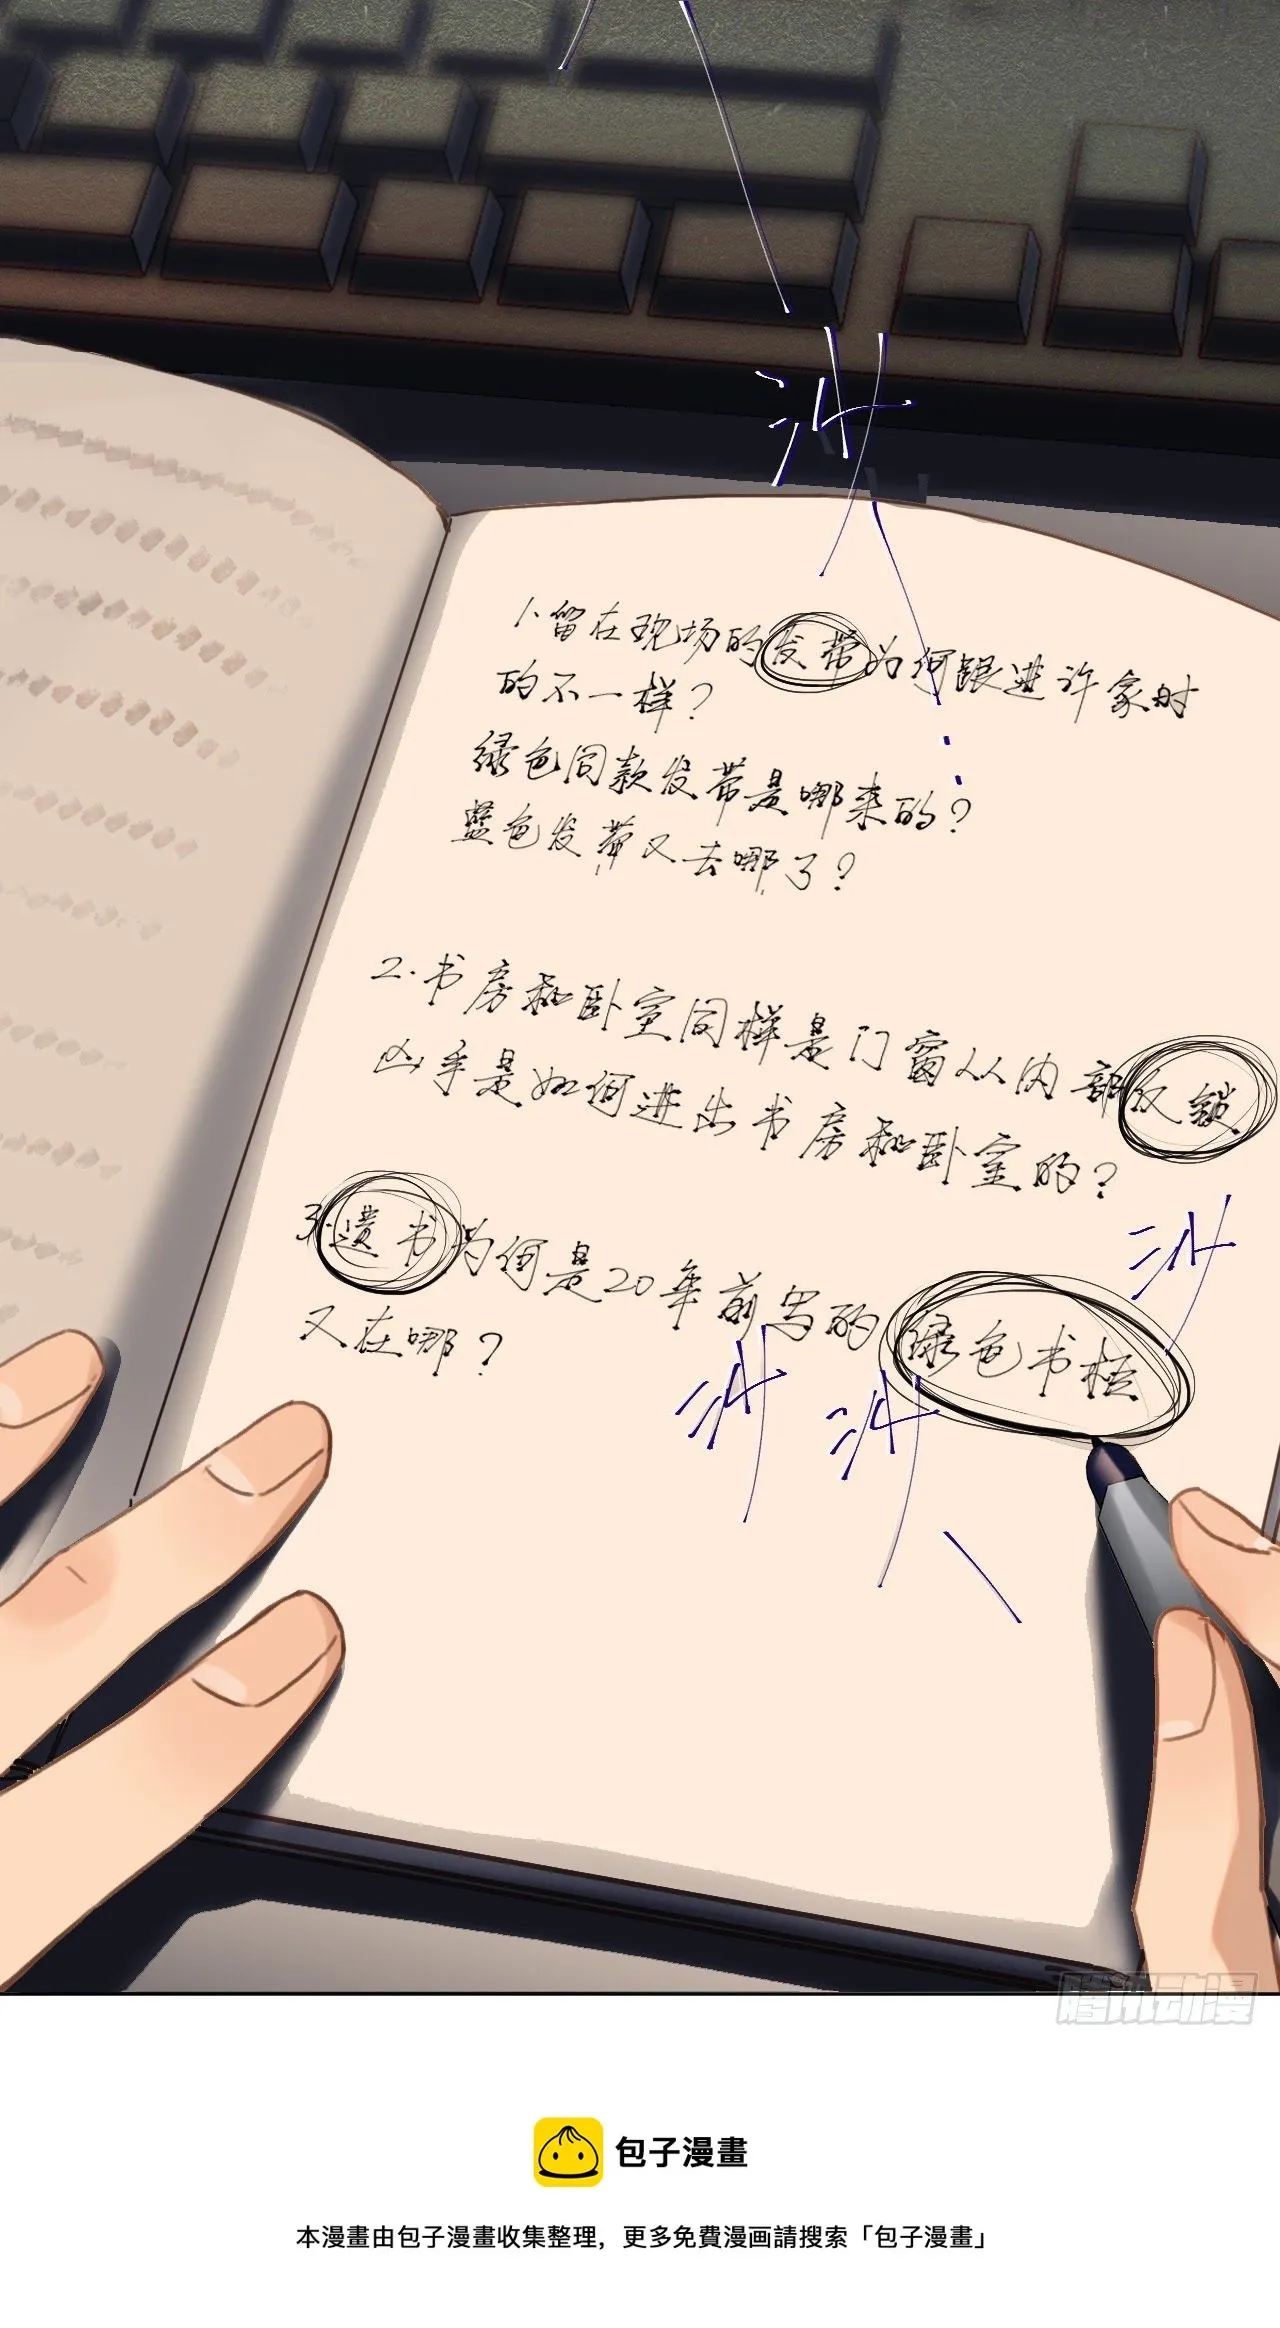 沙
1.留在现场的发带为何跟进许家时
的不一样？
绿色同款发带是哪来的？
蓝色发带又去哪了？
2.书房和卧室同样是门窗从内部反锁
凶手是如何进出书房和卧室的？
沙
3.遗书为何是20年前写的 绿色书桓
又在哪？
沙
沙
腾讯动漫
包子漫畫
本漫畫由包子漫畫收集整理，更多免費漫画請搜索「包子漫畫」